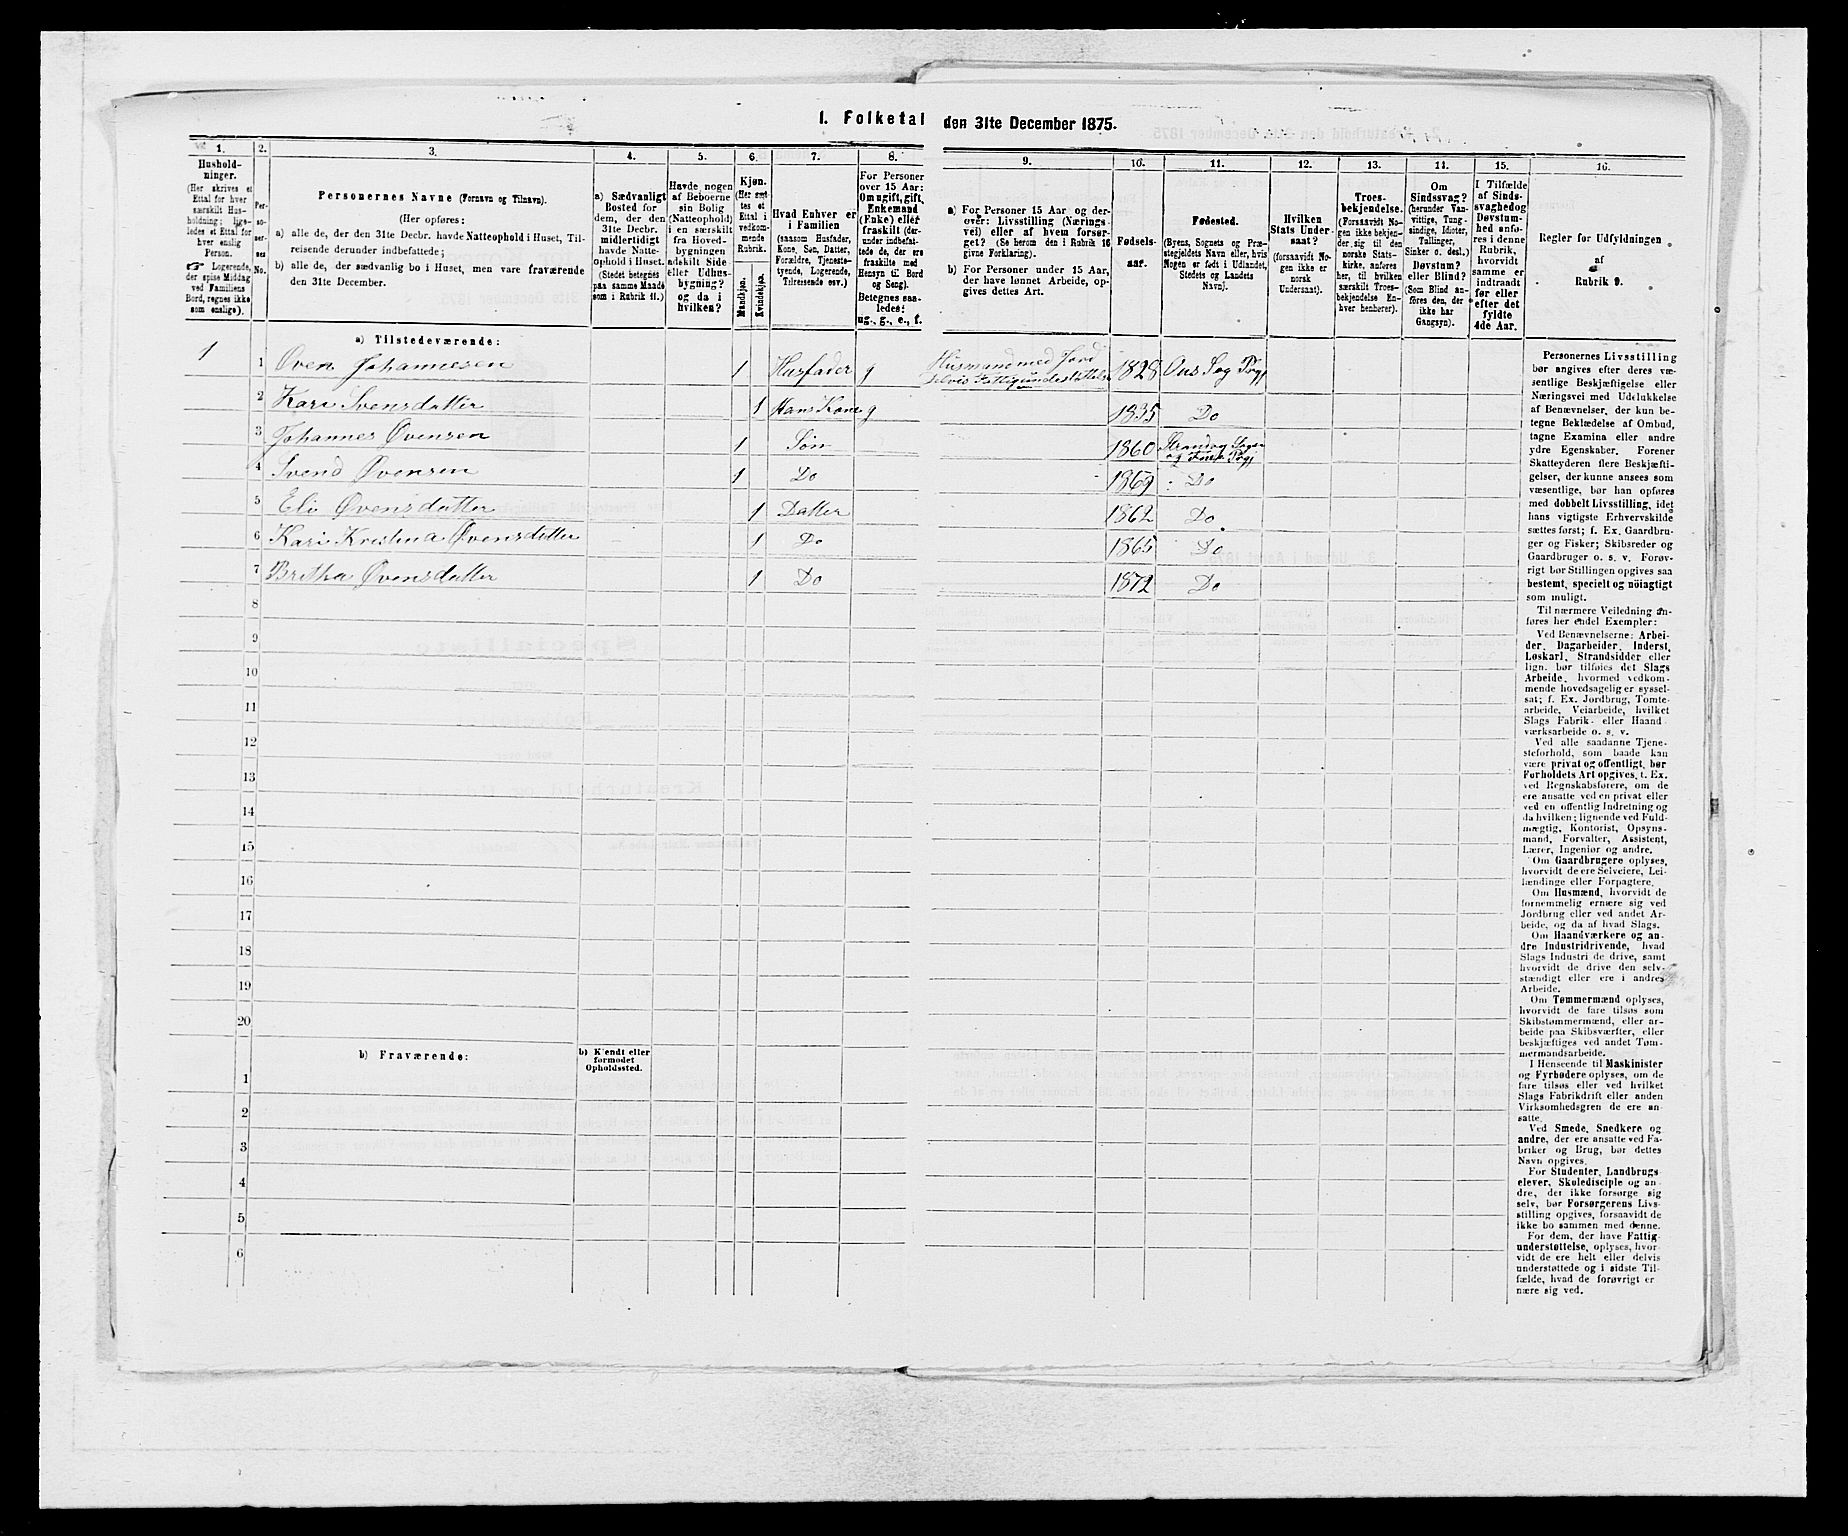 I. Folketal den 31te December 1875.
1.
Hushold-
ninger.
(Her skrives et
Ettal for hver
særskilt Hus-
holdning; lige-
ledes et Ettal for
hver enslig
Person.
☞ Logerende,
der spise Middag
ved Familiens
Bord, regnes ikke
som enslige).
2.
Per-
so-
ner-
nes
No.
3.
Personernes Navne (Fornavn og Tilnavn).
(Her opføres:
a) alle de, der den 31te Decbr. havde Natteophold i Huset, Til-
reisende derunder indbefattede;
b) alle de, der sædvanlig bo i Huset, men vare fraværende
den 31te December.
4.
a) Sædvanligt
Bosted for
dem, der den
31te Decbr.
midlertidigt
havde Natte-
ophold i Huset.
(Stedet betegnes
paa samme Maade
som i Rubrik 11.)
5.
Havde nogen
af Beboerne
sin Bolig
(Natteophold)
i en særskilt
fra Hoved-
bygningen
adskilt Side-
eller Udhus-
bygning?
og da i
hvilken?
6.
Kjøn.
(Her sæt-
tes et
Ettal i
vedkom-
mende
Rubrik.
Mandkjøn.
Kvindekjøn.
7.
Hvad Enhver er
i Familien
(saasom Husfader,
Kone, Søn, Datter,
Forældre, Tjeneste-
tyende, Logerende,
Tilreisende osv.)
8.
For Personer
over 15 Aar:
Om ugift, gift,
Enkemand
(Enke) eller
fraskilt (der-
under indbefat-
tede de, der ere
fraskilte med
Hensyn til Bord
og Seng).
Betegnes saa-
ledes:
ug., g., e., f.
9.
a) For Personer 15 Aar og der-
over: Livsstilling (Nærings-
vei) eller af hvem forsør-
get? (Se herom den i Rubrik 16
givne Forklaring).
b) For Personer under 15 Aar,
der have lønnet Arbeide, op-
gives dettes Art.
10.
Fødsels-
aar.
11.
Fødested.
(Byens, Sognets og Præ-
stegjeldets Navn eller, hvis
Nogen er født i Udlandet,
Stedets og Landets
Navn).
12.
Hvilken
Stats Under-
saat?
(forsaavidt No-
gen ikke er
norsk
Undersaat).
13.
Troes-
bekjendelse.
(Forsaavidt No-
gen ikke bekjen-
der sig til den
norske Stats-
kirke, anføres
her, til hvilken
særskilt Troes-
bekjendelse En-
hver henhører).
14.
Om
Sindssvag?
(herunder Van-
vittige, Tung-
sindige, Idioter,
Tullinger,
Sinker o. desl.)
Døvstum?
eller Blind?
(Som Blind an-
føres den, der
ikke har
Gangsyn).
15.
I Tilfælde
af Sinds-
svaghed og
Døvstum-
hed anfø-
res i denne
Rubrik,
hvorvidt
samme er
indtraadt
før eller
efter det
fyldte
4de Aar.
16.
Regler for Udfyldningen
af
Rubrik 9.
a) Tilstedeværende:
1 1 Oven Johannesen 1 Husfader g Husmand med Jord delvis Fattigunderstøttelse 1828 Ous Sog Prgj
2 Kari Svensdatter 1 Hans Kone g 1835 Do
3 Johannes Øvensen 1 Søn 1860
4 Svend Øvensen 1 Do 1869 Do
5 Eli Øvensdatter 1 Datter 1862 Do
6 Kari Kristina Øvensdatter 1 Do 1865 Do
7 Britha Øvensdatter 1 Do 1872 Do
8
9
10
11
12
13
14
15
16
17
18
19
20
b) Fraværende:
b) Kjendt eller
formodet
Opholdssted.
1
2
3
4
5
6
Personernes Livsstilling
bør angives efter deres væ-
sentlige Beskjæftigelse eller
Næringsvei med Udelukkelse
af Benævnelser, der kun be-
tegne Beklædelse af Ombud,
tagne Examina eller andre
ydre Egenskaber. Forener
Skatteyderen flere Beskjæfti-
gelser, der kunne ansees som
væsentlige, bør han opføres
med dobbelt Livsstilling, idet
hans vigtigste Erhvervskilde
sættes først; f. Ex. Gaardbru-
ger og Fisker; Skibsreder og
Gaardbruger o. s. v. Forøv-
rigt bør Stillingen opgives saa
bestemt, specielt og nøiagtigt
som muligt.
Til nærmere Veiledning an-
føres her endel Exempler:
Ved Benævnelserne: Arbei-
der, Dagarbeider, Inderst,
Løskarl, Strandsidder eller
lign. bør tilføies det Slags
Arbeide, hvormed vedkom-
mende hovedsagelig er syssel-
sat; f. Ex. Jordbrug, Tomte-
arbeide, Veiarbeide, hvilket
Slags Fabrik- eller Haand-
værksarbeide o. s. v.
Ved alle saadanne Tjene-
steforhold, som baade kan
være privat og offentligt, bør
Forholdets Art opgives, t. Ex.
ved Regnskabsførere, om de
ere ansatte ved en privat eller
ved en offentlig Indretning og
da hvilken; lignende ved Fuld-
mægtig, Kontorist, Opsyns-
mand, Forvalter, Assistent,
Lærer, Ingeniør og andre.
Om Gaardbrugere oplyses,
hvorvidt de ere Selveiere, Lei-
lændinge eller Forpagtere.
Om Husmænd, hvorvidt de
fornemmelig ernære sig ved
Jordbrug eller ved andet Ar-
beide, og da af hvad Slags.
Om Haandværkere og an-
dre Industridrivende, hvad
Slags Industri de drive, samt
hvorvidt de drive den selv-
stændigt eller ere i andres
Arbeide.
Om Tømmermænd oplyses,
hvorvidt de fare tilsøs som
Skibstømmermænd, eller ar-
beide paa Skibsværfter, eller
beskjæftiges ved andet Tøm-
mermandsarbeide.
I Henseende til Maskinister
og Fyrbødere oplyses, om de
fare tilsøs eller ved hvilket
Slags Fabrikdrift eller anden
Virksomhedsgren de ere an-
satte.
Ved Smede, Snedkere og
andre, der ere ansatte ved Fa-
briker og Brug, bør dettes
Navn opgives.
For Studenter, Landbrugs-
elever, Skoledisciple og an-
dre, der ikke forsørge sig
selv, bør Forsørgerens Livs-
stilling opgives, forsaavidt de
ikke bo sammen med denne.
For dem, der have Fattig-
understøttelse, oplyses, hvor-
vidt de ere helt eller delvis
understøttede og i sidste Til-
fælde, hvad de forøvrigt er
nære sig ved.